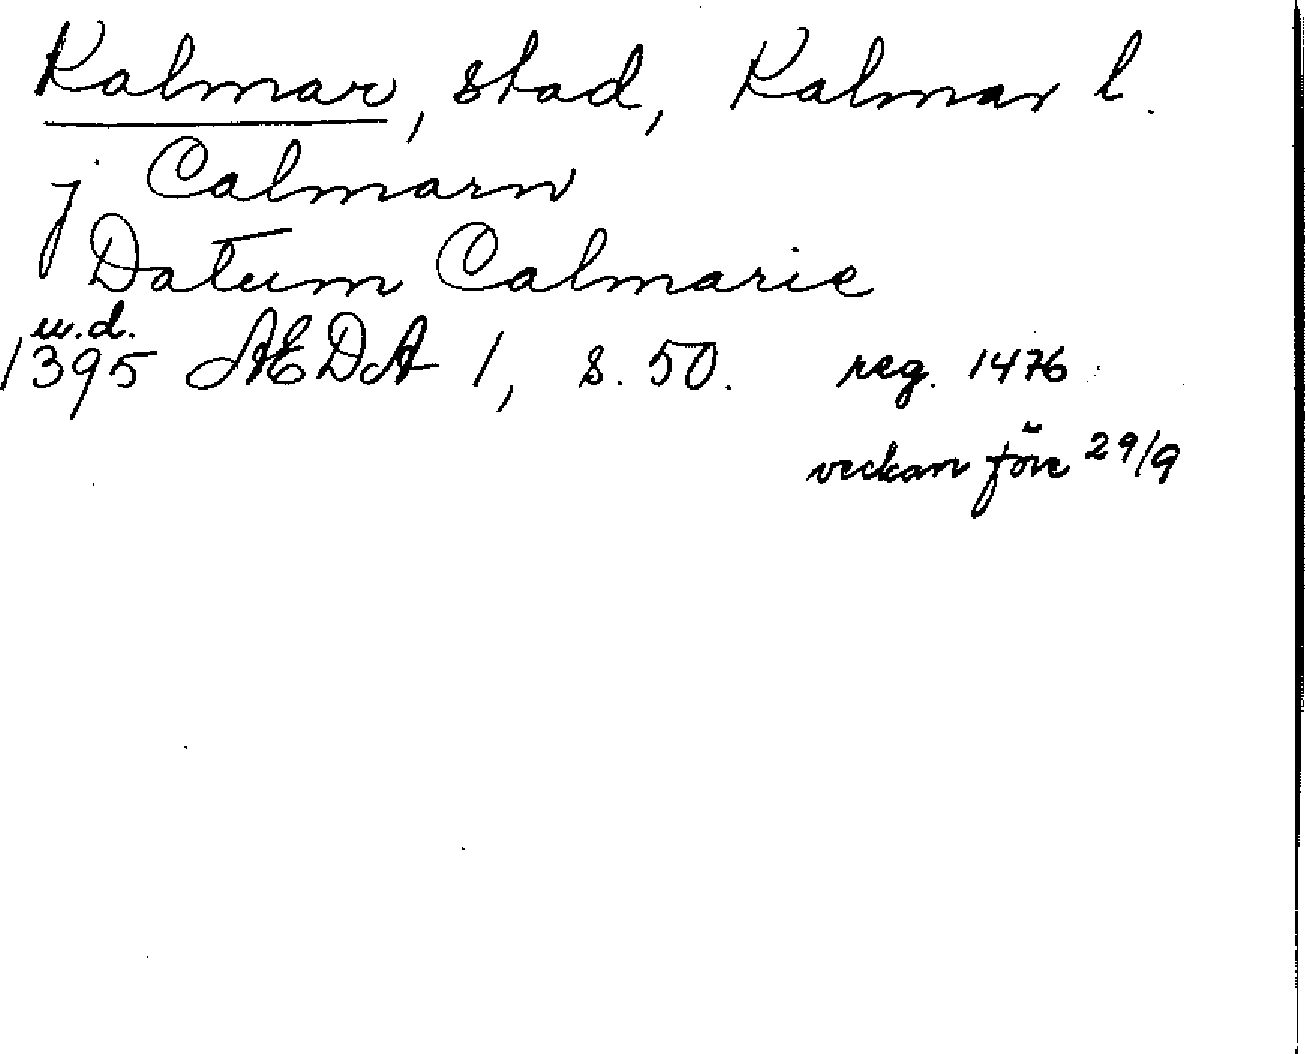 Kalmar, stad, Kalmar l.
j Calmarn
Datum Calmarie
u.d.
1395 ÆDA 1, s. 50. reg. 1476
veckan före 29/9